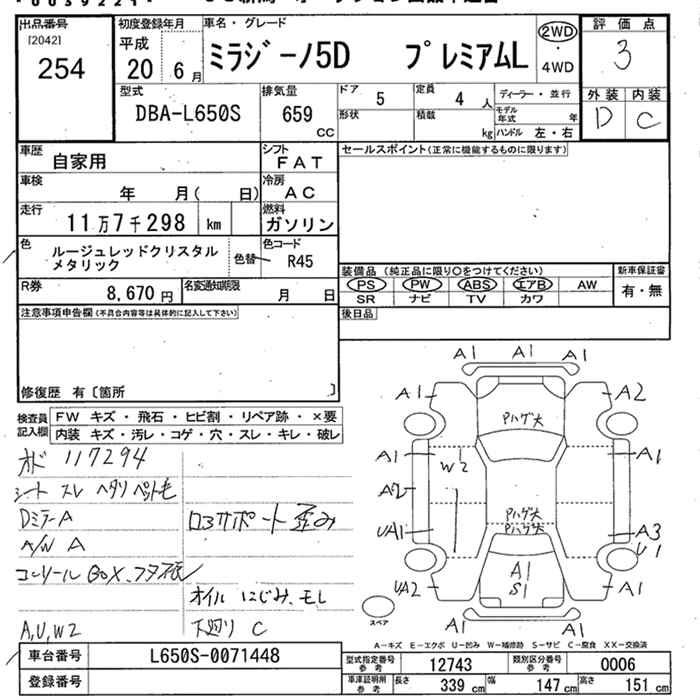 出品番号
[2042]
254
初度登録年月
平成
20 6月
車名・グレード
ミラジーノ5D プレミアムL
2WD
・
4WD
評価点
3
外装 内装
D C
型式
DBA-L650S
排気量
659
CC
ドア 5
定員 4 人
形状
積載 kg
ディーラー・並行
モデル年式 年
ハンドル 左・右
車歴
自家用
シフト
FAT
セールスポイント(正常に機能するものに限ります)
車検
年 月( 日)
冷房
AC
走行
11万7千298 km
燃料
ガソリン
色
ルージュレッドクリスタル
メタリック
色替
色コード
R45
R券
8,670 円
名変通知期限
月 日
装備品(純正品に限り○をつけてください)
PS PW ABS エアB AW
SR ナビ TV カワ
新車保証書
有・無
後日品
注意事項申告欄(不具合内容等は具体的に記入して下さい)
修復歴 有〔箇所 〕
検査員
記入欄
FW キズ・飛石・ヒビ割・リペア跡・×要
内装 キズ・汚レ・コゲ・穴・スレ・キレ・破レ
オド 117294
シート スレ ヘタリ ペット毛
Dミラー A
A/W A
コンソールBOX、フタ
A,U,W2
ロアサポート歪み
オイル にじみ、モレ
下廻り C
A1 A1 A1
A1 A2
Pハゲ大
A1 W2 A1
A2
Pハゲ大
Pハゲ大
UA1 A3
U1
A1
S1
UA2 A1
スペア
A1 A1
A-キズ E-エクボ U-凹み W-補修跡 S-サビ C-腐食 XX-交換済
車台番号 L650S-0071448
登録番号
型式指定番号
参考
12743
類別区分番号
参考
0006
車庫証明用
参考
長さ 339 cm
幅 147 cm
高さ 151 cm